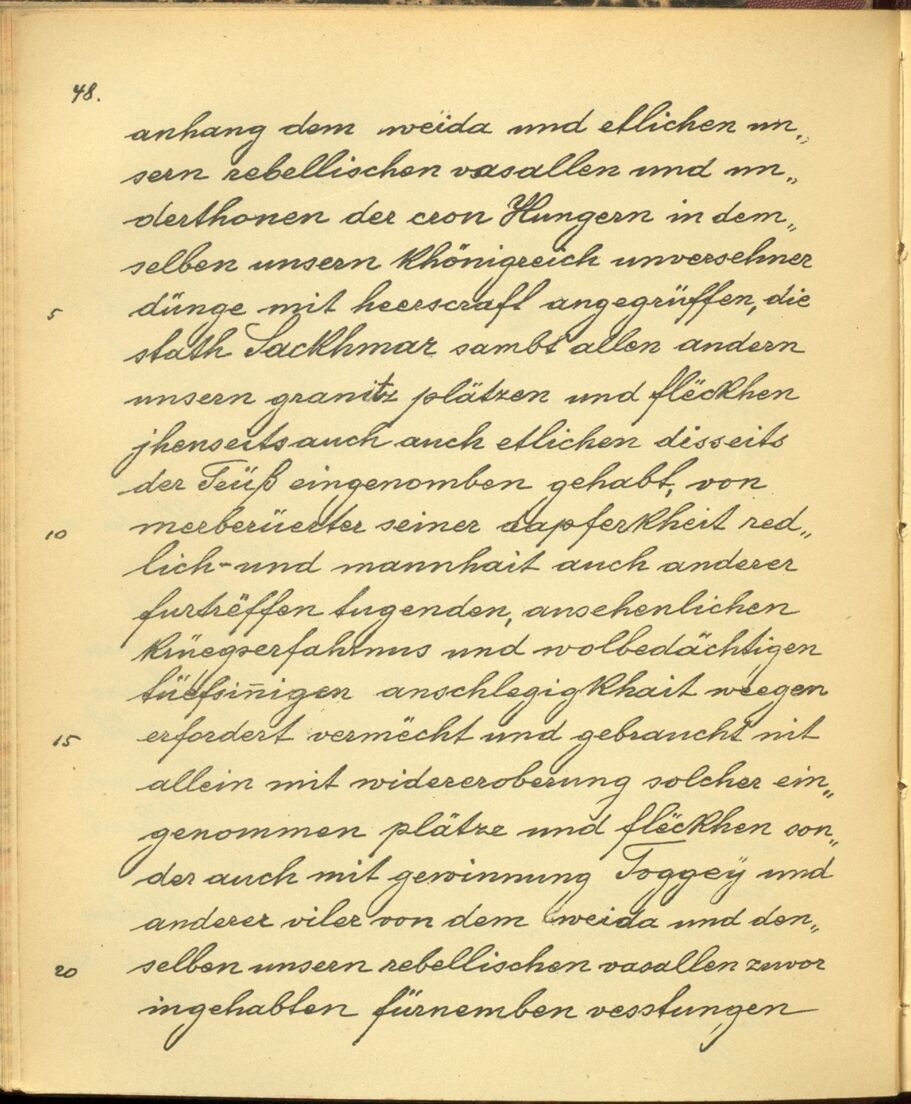 48.
anhang dem weïda und etlichen un„
sern rebellischen vasallen und un„
derthonen der cron Hungern in dem„
selben unsern khönigreich unversehner
5 dünge mit heerscraft angegrüffen, die
stath Sackhmar sambt allen andern
unsern granitz plätzen und flëckhen
jhenseits auch auch etlichen disseits
der Teüß eingenomben gehabt, von
10 merberüerter seiner dapferkheit red„
lich- und mannhait auch anderer
furtrëffen tugenden, ansehenlichen
krüegserfahrnus und wolbedächtigen
tüefsiñigen anschlegigkhait weegen
15 erfordert vermëcht und gebraucht nit
allein mit widereroberung solcher ein„
genommen plätze und flëckhen son„
der auch mit gewinnung Toggeÿ und
anderer viler von dem weida und den„
20 selben unsern rebellischen vasallen zuvor
ingehabten fürnemben vesstungen